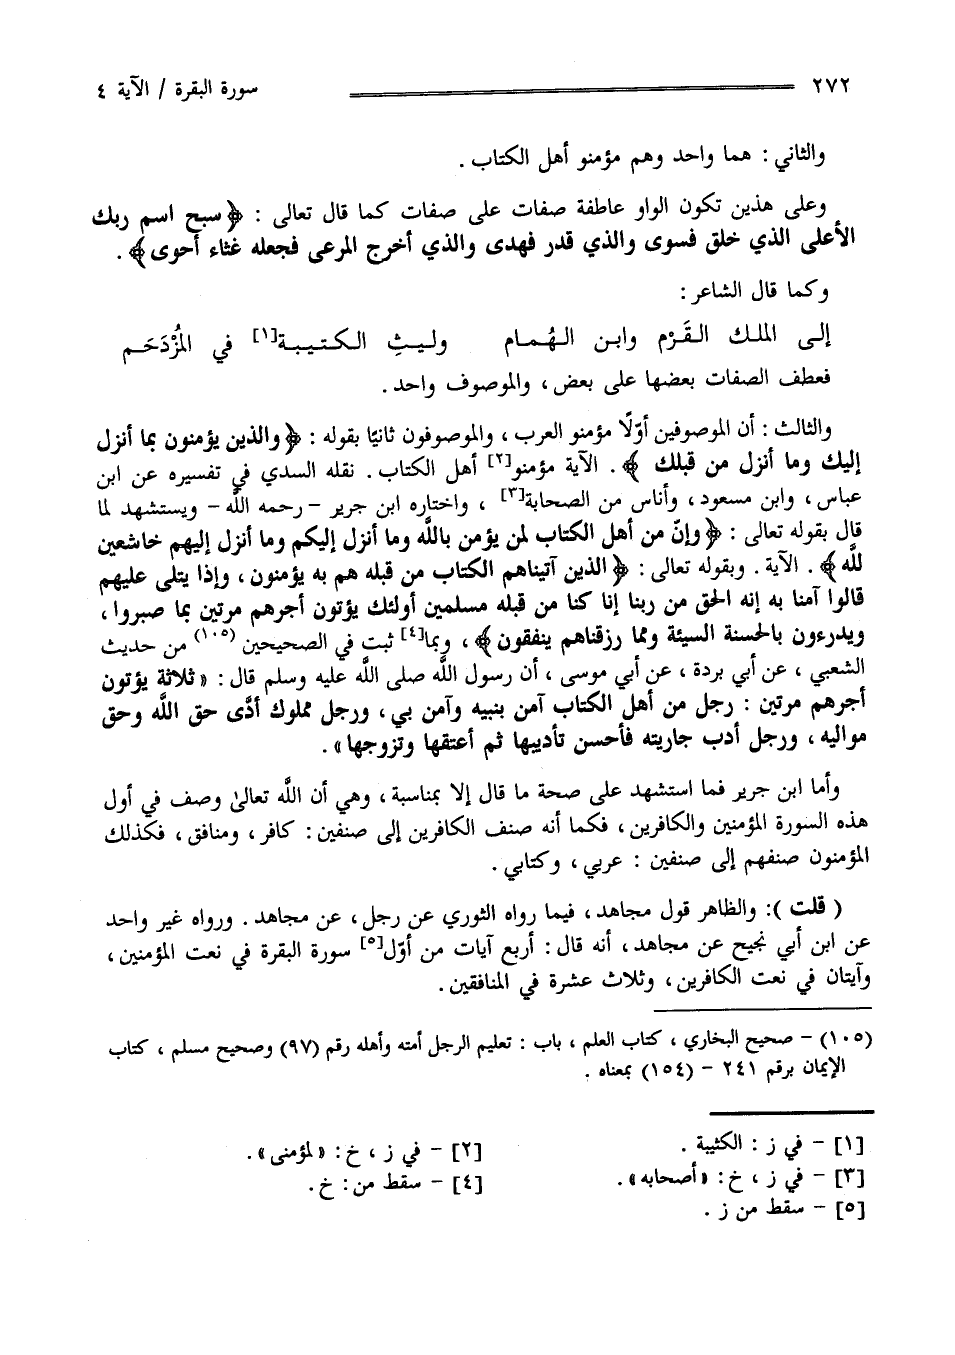 ٢٧٢ سورة البقرة / الآية ٤
والثاني : هما واحد وهم مؤمنو أهل الكتاب .
وعلى هذين تكون الواو عاطفة صفات على صفات كما قال تعالى : ﴿ سبح اسم ربك
الأعلى الذي خلق فسوى والذي قدر فهدى والذي أخرج المرعى فجعله غثاء أحوى ﴾ .
وكما قال الشاعر :
إلى الملك القَرْم وابن الهُمام وليثِ الكتيبة[١] في المُزْدَحَم
فعطف الصفات بعضها على بعض ، والموصوف واحد .
والثالث : أن الموصوفين أوّلًا مؤمنو العرب ، والموصوفون ثانيًا بقوله : ﴿ والذين يؤمنون بما أنزل
إليك وما أنزل من قبلك ﴾ . الآية مؤمنو[٢] أهل الكتاب . نقله السدي في تفسيره عن ابن
عباس ، وابن مسعود ، وأناس من الصحابة[٣] ، واختاره ابن جرير – رحمه اللَّه – ويستشهد لما
قال بقوله تعالى : ﴿ وإنّ من أهل الكتاب لمن يؤمن باللَّه وما أنزل إليكم وما أنزل إليهم خاشعين
للَّه ﴾ . الآية . وبقوله تعالى : ﴿ الذين آتيناهم الكتاب من قبله هم به يؤمنون ، وإذا يتلى عليهم
قالوا آمنا به إنه الحق من ربنا إنا كنا من قبله مسلمين أولئك يؤتون أجرهم مرتين بما صبروا ،
ويدرءون بالحسنة السيئة ومما رزقناهم ينفقون ﴾ ، وبما[٤] ثبت في الصحيحين (١٠٥) من حديث
الشعبي ، عن أبي بردة ، عن أبي موسى ، أن رسول اللَّه صلى اللَّه عليه وسلم قال : « ثلاثة يؤتون
أجرهم مرتين : رجل من أهل الكتاب آمن بنبيه وآمن بي ، ورجل مملوك أدَّى حق اللَّه وحق
مواليه ، ورجل أدب جاريته فأحسن تأديبها ثم أعتقها وتزوجها » .
وأما ابن جرير فما استشهد على صحة ما قال إلا بمناسبة ، وهي أن اللَّه تعالىٰ وصف في أول
هذه السورة المؤمنين والكافرين ، فكما أنه صنف الكافرين إلى صنفين : كافر ، ومنافق ، فكذلك
المؤمنون صنفهم إلى صنفين : عربي ، وكتابي .
( قلت ) : والظاهر قول مجاهد ، فيما رواه الثوري عن رجل ، عن مجاهد . ورواه غير واحد
عن ابن أبي نجيح عن مجاهد ، أنه قال : أربع آيات من أوّل[٥] سورة البقرة في نعت المؤمنين ،
وآيتان في نعت الكافرين ، وثلاث عشرة في المنافقين .
(١٠٥) – صحيح البخاري ، كتاب العلم ، باب : تعليم الرجل أمته وأهله رقم (٩٧) وصحيح مسلم ، كتاب
الإيمان برقم ٢٤١ – (١٥٤) بمعناه .
[١] – في ز : الكثيبة . [٢] – في ز ، خ : « لمؤمنى » .
[٣] – في ز ، خ : « أصحابه » . [٤] – سقط من : خ .
[٥] – سقط من ز .